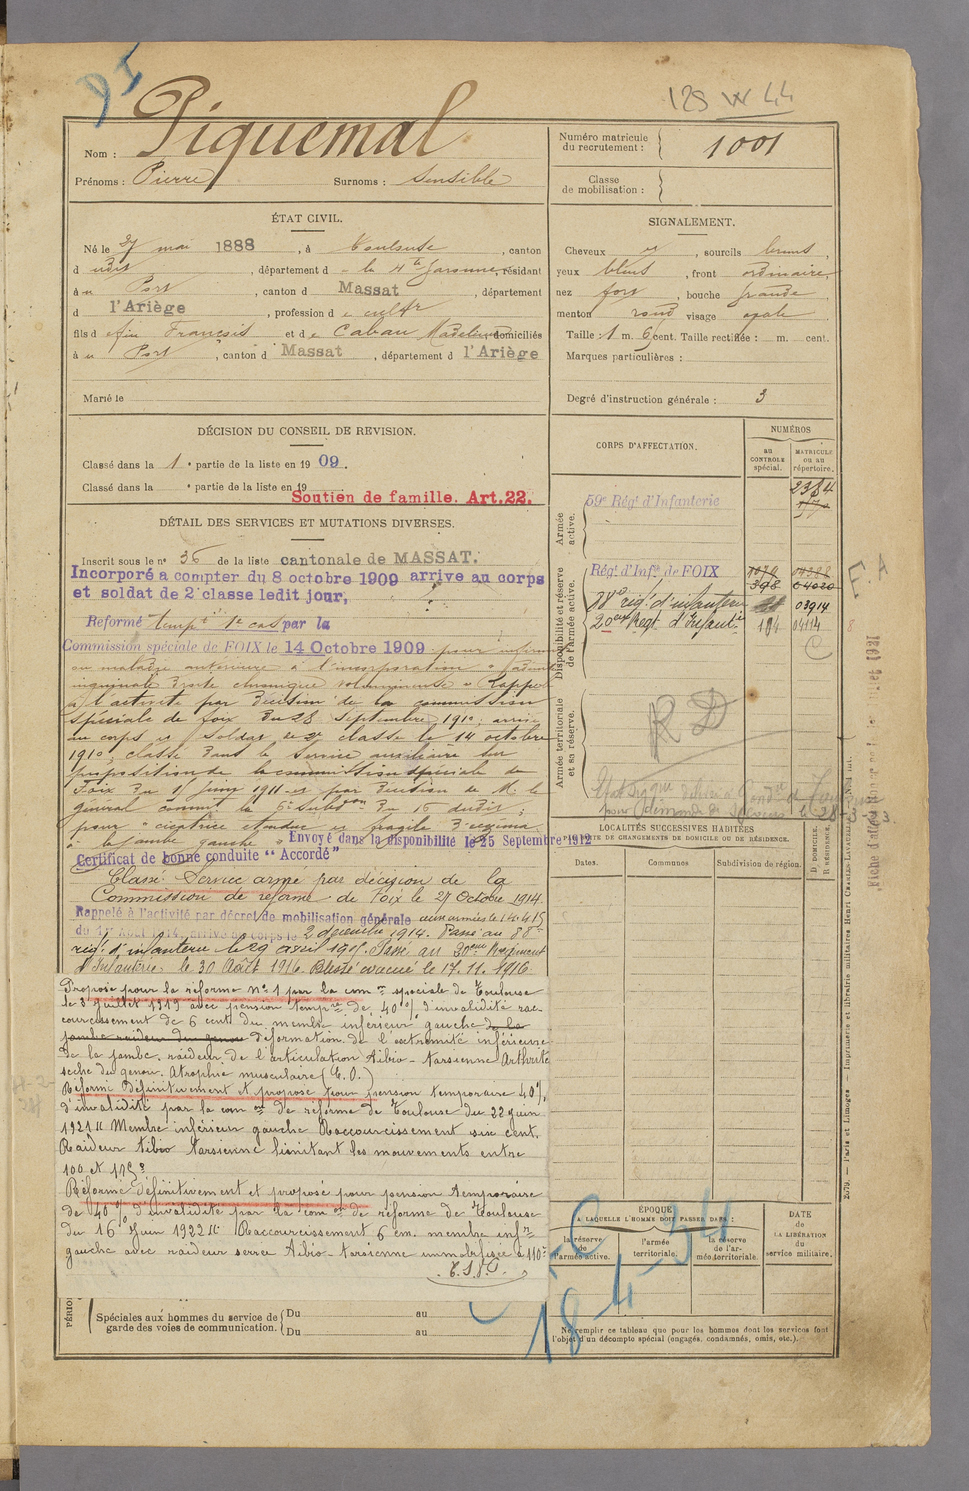 DI
125 W 44
Nom : Piquemal
Prénoms : Pierre Surnoms : Sensible
Numéro matricule du recrutement : 1001
Classe de mobilisation :
ÉTAT CIVIL.
Né le 27 mai 1888, à Toulouse, canton
d udit, département d e la Hte Garonne, résidant
à u Port, canton d Massat, département
d l'Ariège, profession d e cultr
fils d e feu François et d e Caban Madeleine domiciliés
à u Port, canton d Massat, département d l'Ariège
Marié le
SIGNALEMENT.
Cheveux id, sourcils bruns,
yeux bleus, front ordinaire,
nez fort, bouche grande
menton rond visage ovale
Taille : 1 m. 6 cent. Taille rectifiée : m. cent.
Marques particulières :
Degré d'instruction générale : 3
DÉCISION DU CONSEIL DE REVISION.
Classé dans la 1e partie de la liste en 1909.
Classé dans la e partie de la liste en 19
Soutien de famille. Art.22.
DÉTAIL DES SERVICES ET MUTATIONS DIVERSES.
Inscrit sous le n° 36 de la liste cantonale de MASSAT.
Incorporé a compter du 8 octobre 1909 arrive au corps
et soldat de 2e classe ledit jour,
Reformé tempt 1e cas par la
Commission spéciale de FOIX le 14 Octobre 1909 pour
ou maladie antérieure à l'incorporation
inguinale droite chronique volumineuse " Rappel
à l'activité par décision de la commission
spéciale de foix du 28 Septembre 1910, arrivé
au corps et soldat de 2e classe le 14 octobre
1910, classé dans le service auxiliaire sur
proposition de la commission spéciale de
Foix du 1 Juin 1911 et par décision de M. le
général commt la 6e Subdon du 16 dudit ;
pour "cicatrice étendue et fragile d'eczéma
à jambe gauche"
Envoyé dans la disponibilité le 25 Septembre 1912
Certificat de bonne conduite "Accordé"
Classé Service armé par décision de la
Commission de réforme de Foix le 27 Octobre 1914.
Rappelé à l'activité par décret de mobilisation générale aux armées le 14.4.15
du 1er Août 1914, arrivé au corps le 2 décembre 1914. Passé au 88e
régt d'infanterie le 29 avril 1915. Passé au 20eme Régiment
d'Infanterie le 30 Août 1916. Blessé évacué le 17.11.1916.
Proposé pour la réforme N°1 par la comon spéciale de Toulouse
le 3 Juillet 1919 avec pension tempre de 40% d'invalidité rac-
courcissement de 6 cent. du membre inférieur gauche de la
jambe raideur du genou déformation de l'extrémité inférieure
de la jambe. raideur de l'articulation tibio-tarsienne Arthrite
sèche du genou. Atrophie musculaire (E.O.)
Réformé Définitivement et proposé pour pension temporaire 40%
d'invalidité par la comon de réforme de Toulouse du 22 juin
1921 " Membre inférieur gauche Raccourcissement six cent.
Raideur tibio tarsienne limitant les mouvements entre
100 et 115°
Réformé définitivement et proposé pour pension temporaire
de 40% d'invalidité par la comon de réforme de Toulouse
du 16 Juin 1922 " Raccourcissement 6 cm. membre infr
gauche avec raideur serrée tibio-tarsienne immobilisée à 110°
PÉRIO
Spéciales aux hommes du service de garde des voies de communication.
Du au
Du au
CORPS D'AFFECTATION.
NUMÉROS
au CONTROLE spécial.
MATRICULE ou au répertoire.
Armée active.
59e Régt d'Infanterie 2384
Disponibilité et réserve de l'armée active.
Régt d'Infie de FOIX
398 04020
88e régt d'infanterie 03914
20eme Regt d'Infantie 194 04114
C
Armée territoriale et sa réserve.
RD
le 28-3-33
LOCALITÉS SUCCESSIVES HABITÉES
PAR SUITE DE CHANGEMENTS DE DOMICILE OU DE RÉSIDENCE.
Dates. Communes Subdivision de région. D. DOMICILE. R. RÉSIDENCE.
ÉPOQUE
A LAQUELLE L'HOMME DOIT PASSER DANS :
la réserve de l'armée active.
l'armée territoriale.
la réserve de l'armée territoriale.
DATE DE LA LIBÉRATION du service militaire.
18-4-34
Ne remplir ce tableau que pour les hommes dont les services font
l'objet d'un décompte spécial (engagés, condamnés, omis, etc.).
2679. — Paris et Limoges — Imprimerie et librairie militaires Henri CHARLES-LAVAUZELLE